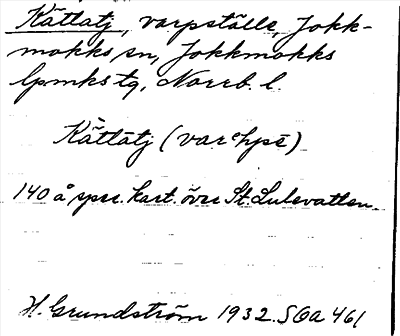 Kättatj, varpställe, Jokk-
mokks sn, Jokkmokks
lpmks tg, Norrb. l.
Kättatj (varᵉhpē)
140 å spec. kart. över St. Lulevatten.
H. Grundström 1932. SOA 461